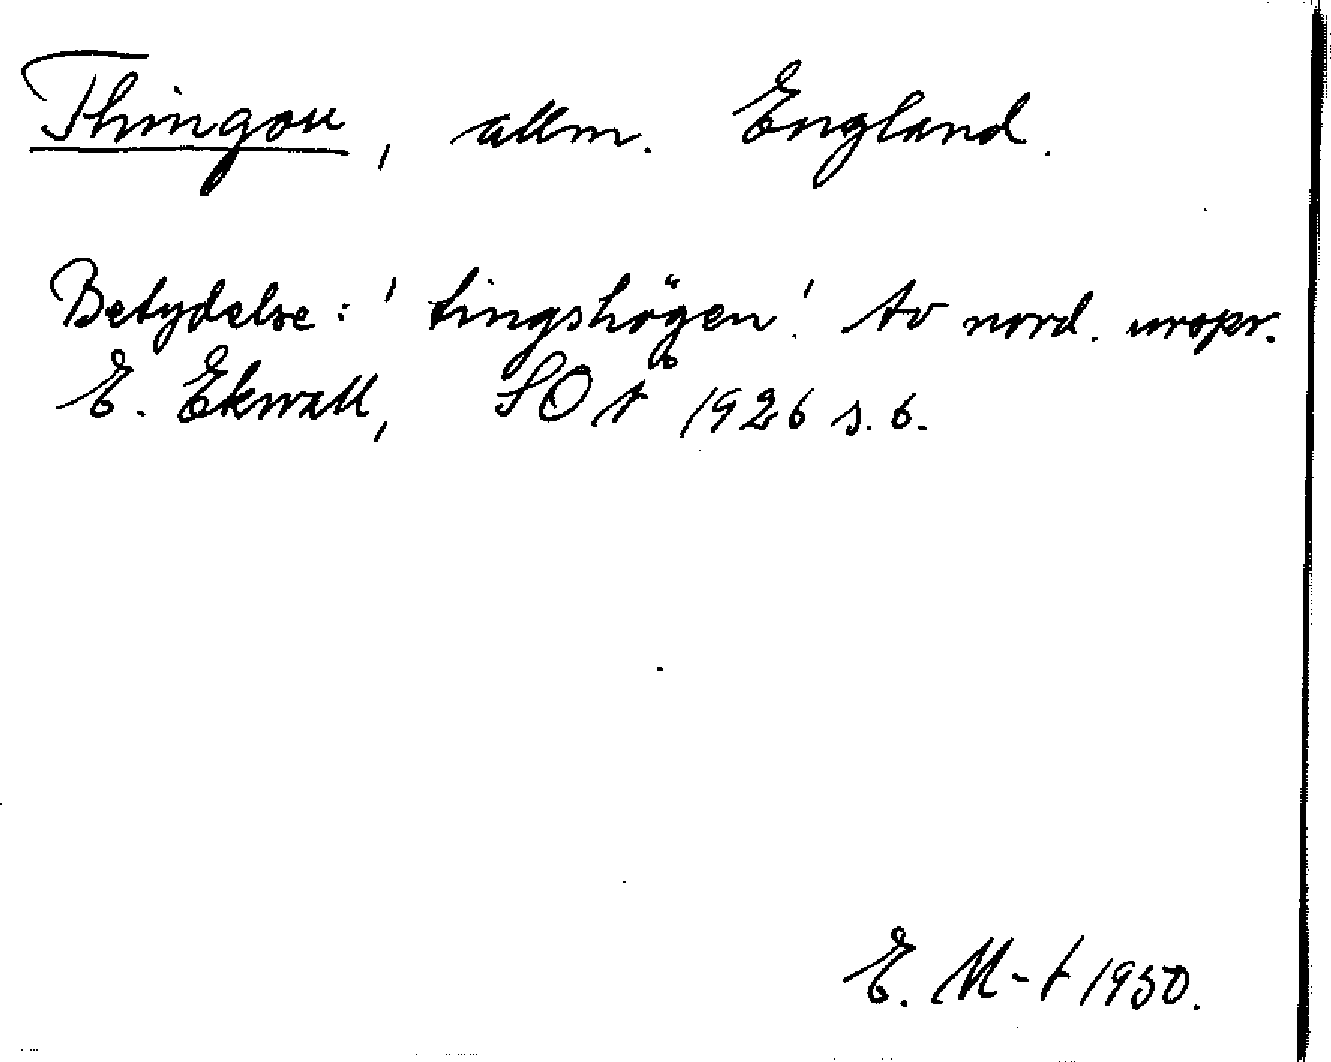 Thingou, allm. England.
Betydelse: 'tingshögen'. Av nord. urspr.
E. Ekwall, SOÅ 1926 s. 6.
E. M-t 1930.